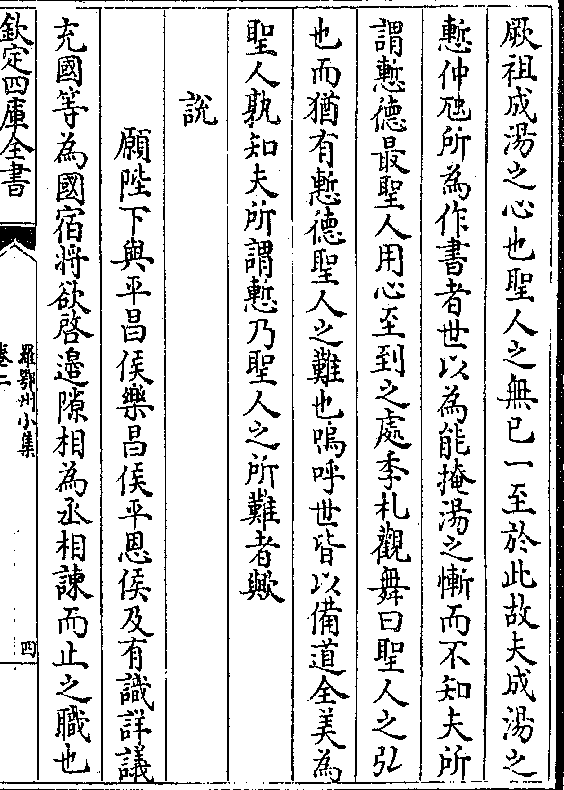 厥祖成湯之心也聖人之無已一至於此故夫成湯之
慙仲虺所為作書者世以為能掩湯之慚而不知夫所
謂慙德最聖人用心至到之處季札觀舞曰聖人之弘
也而猶有慙德聖人之難也嗚呼世皆以備道全美為
聖人孰知夫所謂慙乃聖人之所難者歟
說
願陛下與平昌侯樂昌侯平恩侯及有識詳議
充國等為國宿將欲啓邉隙相為丞相諫而止之職也
欽定四庫全書
羅鄂州小集
卷二
四